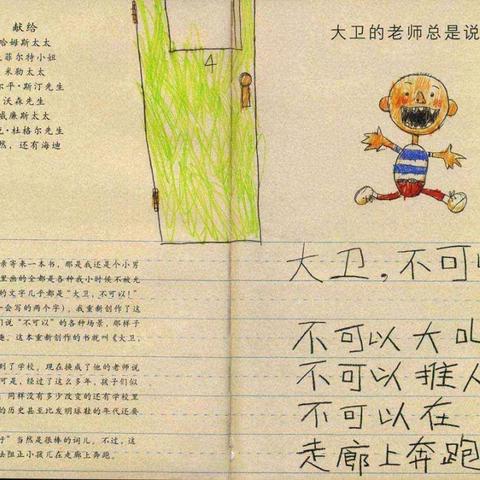 献给
哈姆斯太太
菲尔特小姐
米勒太太
尔平·斯汀先生
沃森先生
威廉斯太太
克·杜格尔先生
然，还有海迪
4
亲寄来一本书，那是我还是个小男
里画的全都是各种我小时候不被允
的文字几乎都是“大卫，不可以！”
一会写的两个字)。我重新创作了这
们说“不可以”的各种场景，那样子
趣。这本重新创作的书就叫《大卫，
到了学校，现在换成了他的老师说
可是，经过了这么多年，孩子们似
同样没有多少改变的还有学校里
的历史甚至比发明球鞋的年代还要
”当然是很棒的词儿。不过，这
法阻止小孩儿在走廊上奔跑。
大卫的老师总是说
大卫，不可以
不可以大叫
不可以推人
不可以在
走廊上奔跑